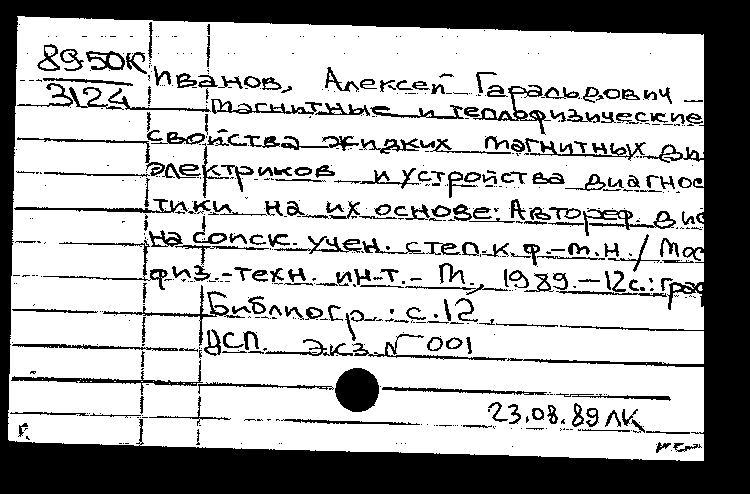 89-50К
3124
Иванов, Алексей Гаральдович
Магнитные и теплофизические
свойства жидких магнитных ди
электриков и устройства диагнос
тики на их основе: Автореф. дис
на соиск. учен. степ. к. ф.-м.н. / Мос
физ.-техн. ин-т. - М., 1989. - 12с.: граф
Библиогр.: с.12.
ДСП. Экз. № 001
23.08.89 ЛК